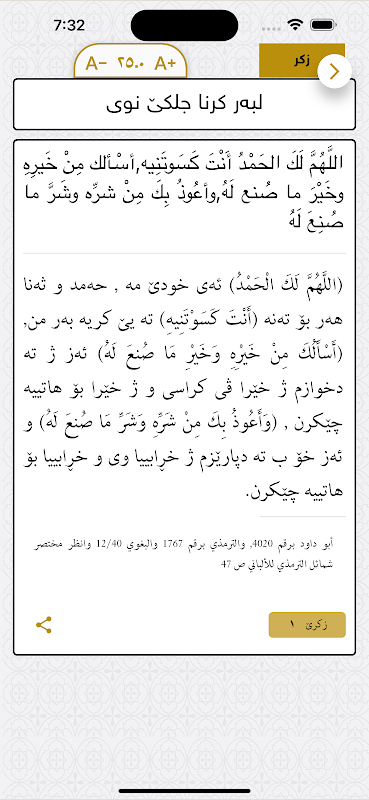 7:32
A- ٢٥.٠ A+
زکر
لبەر کرنا جلکێ نوی
اللَّهُمَّ لَكَ الحَمْدُ أَنْتَ كَسَوتَنِيه,أسْألك مِنْ خَيرِهِ
وخَيْرَ ما صُنع لَهُ,وأعُوذُ بِكَ مِنْ شرِّه وشَرَّ ما
صُنِعَ لَهُ
(اللَّهُمَّ لَكَ الْحَمْدُ) ئەی خودێ مە , حەمد و ثەنا
هەر بۆ تەنە (أَنْتَ كَسَوْتَنِيهِ) تە یێ کریە بەر من,
(أَسْأَلُكَ مِنْ خَيْرِهِ وَخَيْرِ مَا صُنِعَ لَهُ) ئەز ژ تە
دخوازم ژ خێرا ڤی کراسی و ژ خێرا بۆ هاتییە
چێکرن , (وَأَعُوذُ بِكَ مِنْ شَرِّهِ وَشَرِّ مَا صُنِعَ لَهُ) و
ئەز خۆ ب تە دپارێزم ژ خرابییا وی و خڕابییا بۆ
هاتییە چێکرن.
أبو داود برقم 4020, والترمذي برقم 1767 والبغوي 12/40 وانظر مختصر
شمائل الترمذي للألباني ص 47
زکرێ ١